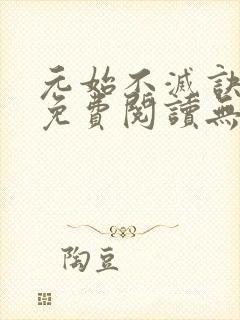 元始不滅訣
免費閱讀無
陶豆